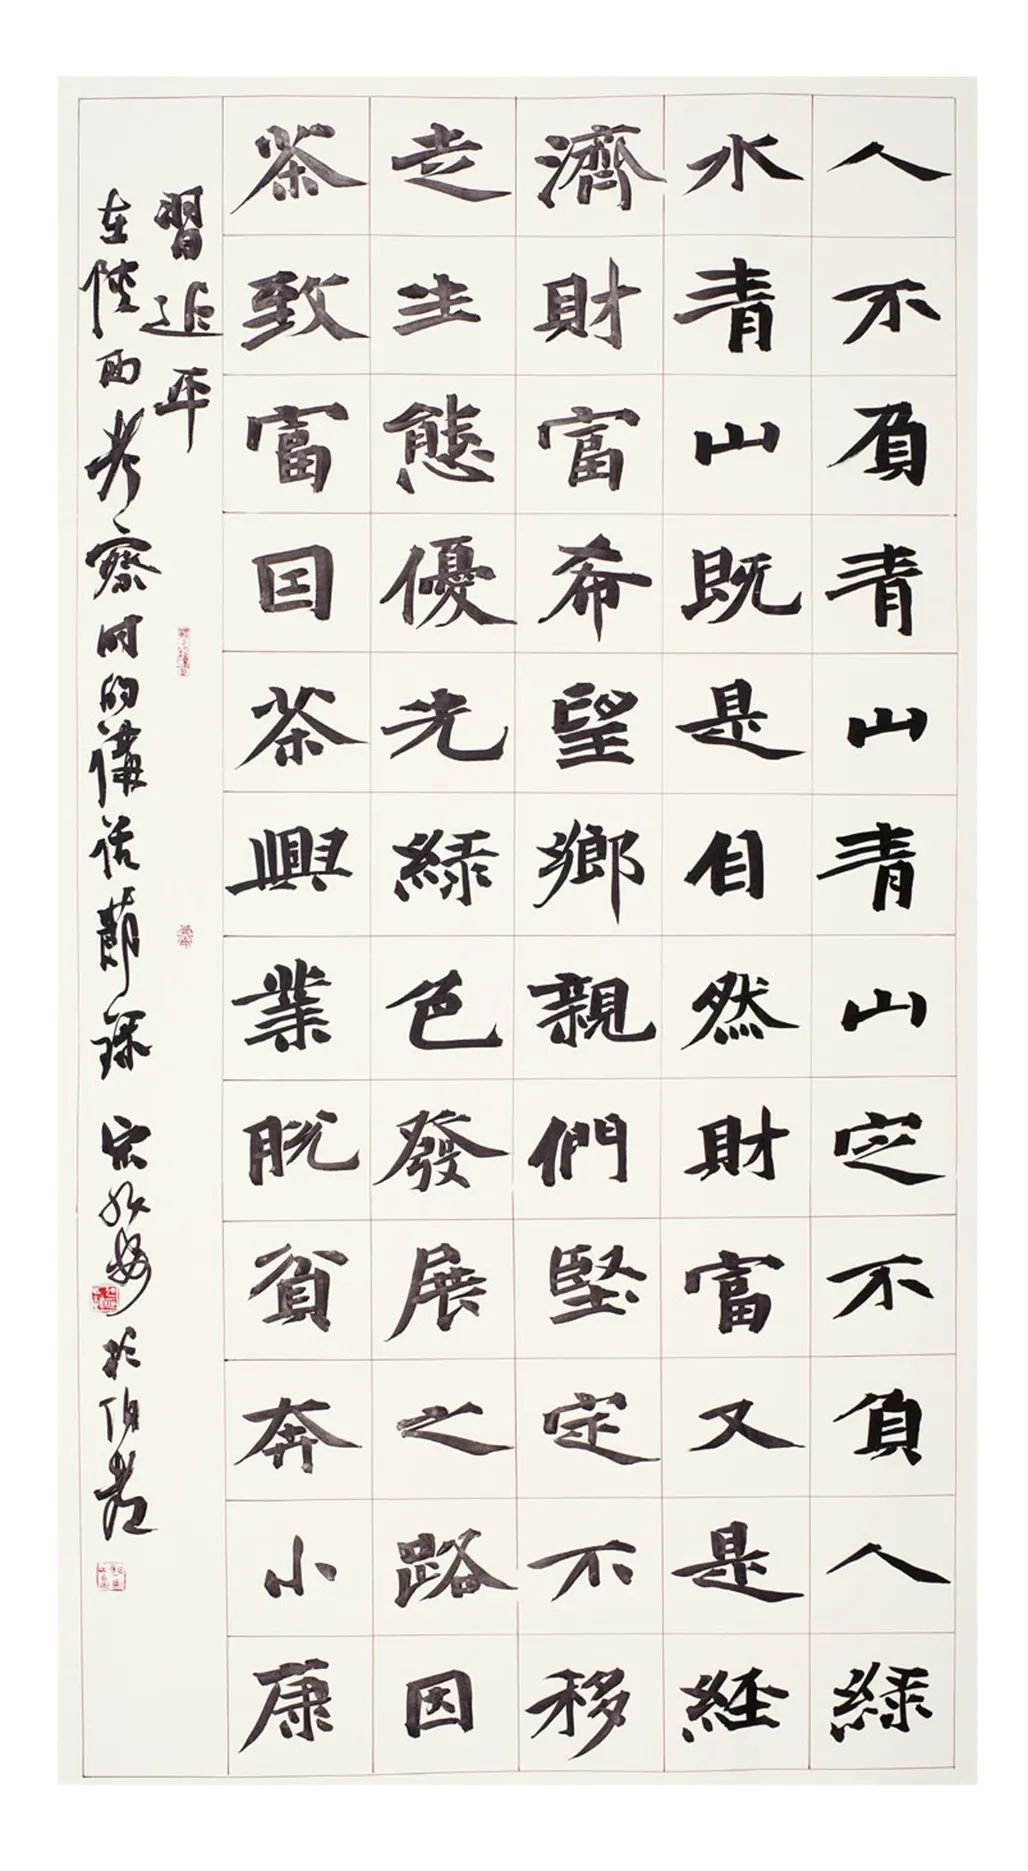 人不負青山青山定不負人綠
水青山既是自然財富又是經
濟財富希望鄉親們堅定不移
走生態優先綠色發展之路因
茶致富因茶興業脫貧奔小康
習近平
在陝西考察時的講話節錄